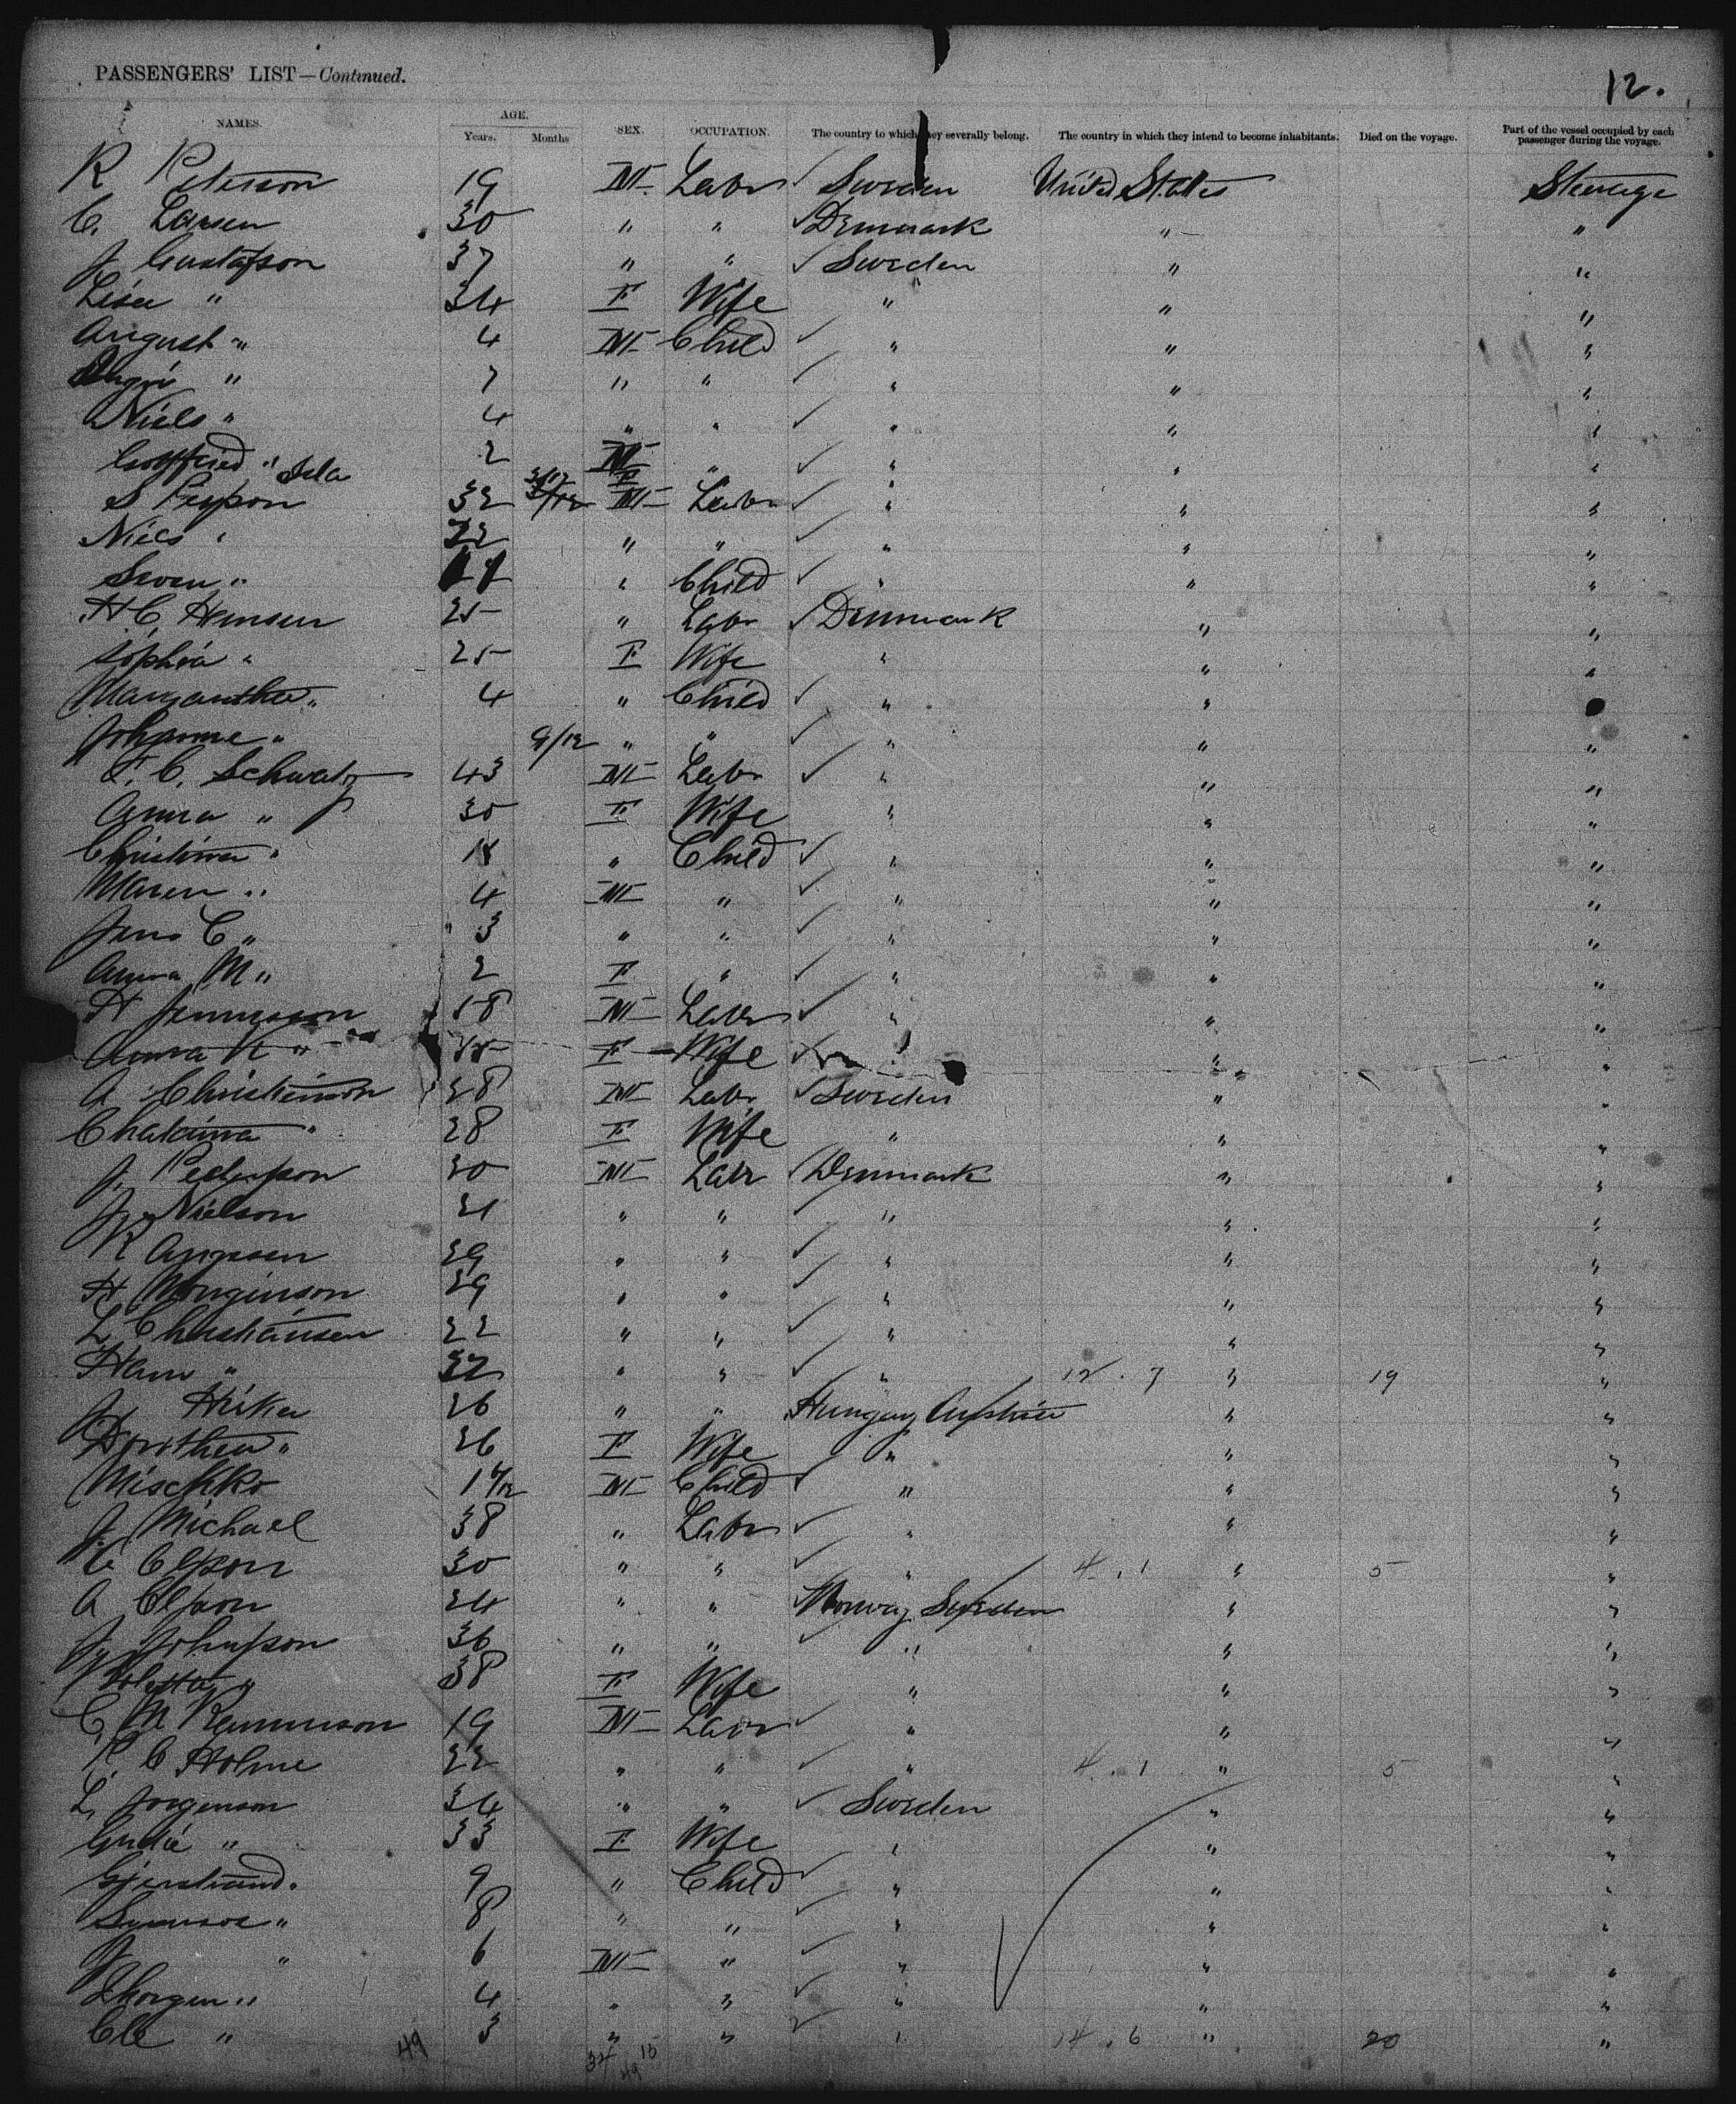 PASSENGERS' LIST—Continued.
12.
NAMES. AGE. Years. Months SEX. OCCUPATION. The country to which they severally belong. The country in which they intend to become inhabitants. Died on the voyage. Part of the vessel occupied by each passenger during the voyage.
R Peterson 19 M Labr ✓ Sweden United States Steerage
C. Larsen 30 " " ✓ Denmark " "
J Gustafson 37 " " ✓ Sweden " "
Lisa " 34 F Wife " " "
August " 4 M Child ✓ " " "
" 7 " " ✓ " " "
Niels " 4 " " ✓ " " "
Gottfried " 2 M " ✓ " " "
Ida 3/12 F
S Pepson 32 M Labr ✓ " " "
Niels " 22 " " ✓ " " "
Swen " " Child ✓ " " "
H C Hensen 25 " Labr ✓ Denmark " "
Sophia " 25 F Wife " " "
Margaretha " 4 " Child ✓ " " "
Johanne " 9/12 " " ✓ " " "
F. C. Schwatz 43 M Labr ✓ " " "
Anna " 30 F Wife " " "
Christina " " Child ✓ " " "
Maren " 4 M " ✓ " " "
Jens C " 3 " " ✓ " " "
Anna M " 2 F " ✓ " " "
H 58 M Labr ✓ " " "
Anna K " F Wife ✓ " "
A Christenson 28 M Labr ✓ Sweden " "
Chatarina " 28 F Wife " " "
J. Pederson 20 M Labr ✓ Denmark " "
J Nielson 21 " " ✓ " " "
R 29 " " ✓ " " "
H Monginson 29 " " ✓ " " "
L Christiansen 22 " " ✓ " " "
Hans " 32 " " ✓ " 12 . 7 " 19 "
J Hrika 26 " " Hungary Austria " "
Dorothea " 26 F Wife " " "
Mischko 1 M Child ✓ " " "
J Michael 38 " Labr ✓ " " "
C Olson 30 " " ✓ " 4 . 1 " 5 "
A Olson 24 " " Norway Sweden " "
J Johnson 36 " " ✓ " " "
" 38 F Wife " " "
C M Rasmusson 19 M Labr ✓ " " "
P. C Holme 22 " " ✓ " 4 . 1 " 5 "
L. Jorgenson 34 " " ✓ Sweden " "
" 33 F Wife " " "
" 9 " Child ✓ " " "
" 8 " " ✓ " " "
J " 6 M " ✓ " " "
Thorgen " 4 " " ✓ " " "
Ole " 3 " " ✓ " 14 . 6 " 20 "
49 34 15
49